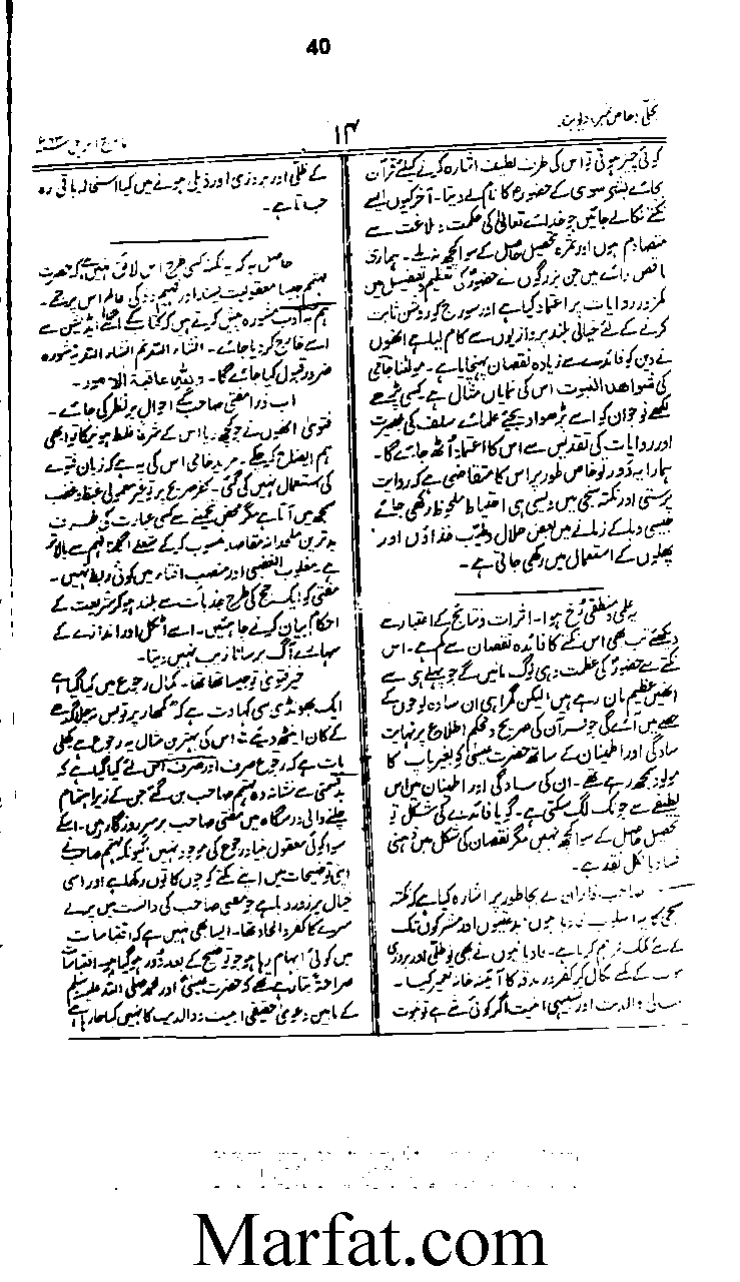 40
تجلی خاص نمبر دیوبند
۱۴
مارچ اپریل ۶۳ء
کوئی چیز ہوتی تو اس کی طرف لطیف اشارہ کرنے کیلئے قرآن
بجائے بشر سوی کے حضور کا نام لے دیتا۔ آخر کیوں ایسے
نکتے نکالے جائیں جو خدائے تعالیٰ کی حکمت و بلاغت سے
متصادم ہوں اور ثمرہ تحصیل حاصل کے سوا کچھ نہ ملے۔ ہماری
ناقص رائے میں جن بزرگوں نے حضور کی تعظیم و تفضیل میں
کمزور روایات پر اعتماد کیا ہے اور سورج کو روشن ثابت
کرنے کے لئے خیالی بلند پروازیوں سے کام لیا ہے انھوں
نے دین کو فائدے سے زیادہ نقصان پہنچایا ہے۔ مولٰنا جامی
کی شواھد النبوت اس کی نمایاں مثال ہے کسی پڑھے
لکھے نوجوان کو اسے پڑھوا دیجئے علمائے سلف کی بصیرت
اور روایات کی تقدیس سے اس کا اعتماد اُٹھ جائے گا۔
ہمارا یہ دور تو خاص طور پر اس کا متقاضی ہے کہ روایت
پرستی اور نکتہ سنجی میں ویسی ہی احتیاط ملحوظ رکھی جائے
جیسی وبا کے زمانے میں بعض حلال و طیب غذاؤں اور
پھلوں کے استعمال میں رکھی جاتی ہے۔
یہ علمی و منطقی رُخ ہوا۔ اثرات و نتائج کے اعتبار سے
دیکھئے تب بھی اس نکتے کا فائدہ نقصان سے کم ہے۔ اس
نکتے سے حضور کی عظمت وہی لوگ مانیں گے جو پہلے ہی سے
انھیں عظیم مان رہے ہیں لیکن گمراہی ان سادہ لوحوں کے
حصے میں آئے گی جو قرآن کی صریح و محکم اطلاع پر نہایت
سادگی اور اطمینان کے ساتھ حضرت عیسیٰ کو بغیر باپ کا
مولود سمجھ رہے تھے۔ ان کی سادگی اور اطمینان میں اس
لطیفے سے جونک لگ سکتی ہے۔ گویا فائدے کی شکل تو
تحصیل حاصل کے سوا کچھ نہیں مگر نقصان کی شکل میں ذہنی
فساد بالکل نقد ہے۔
صاحب فاران نے بجا طور پر اشارہ کیا ہے کہ نکتہ
سنجی کا یہ اسلوب بدعتیوں اور مشرکوں تک
کے لئے کمک فراہم کرتا ہے۔ قادیانیوں نے بھی تو ظلی اور بروزی
کے نکتے نکال کر کفر و زندقہ کا آئینہ خانہ تعمیر کیا۔
والدیت اور ابنیت اگر کوئی شے ہے تو نبوت
کے ظلی اور بروزی اور ذیلی ہونے میں کیا استحالہ باقی رہ
جاتا ہے۔
حاصل یہ کہ یہ نکتہ کسی طرح اس لائق نہیں ہے کہ حضرت
مہتمم جیسا معقولیت پسند اور فہیم و ذکی عالم اس پر جمے۔
ہم بہ ادب مشورہ پیش کرتے ہیں کہ کتاب کے اگلے ایڈیشن سے
اسے خارج کر دیا جائے۔ انشاء اللہ ثم انشاء اللہ یہ مشورہ
ضرور قبول کیا جائے گا۔ وللہ عاقبۃ الامور۔
اب ذرا مفتی صاحب کے احوال پر نظر کی جائے۔
فتویٰ انھوں نے جو کچھ دیا اس کے صرف غلط ہونے کا تو ابھی
ہم ایضاح کر چکے۔ مزید خامی اس کی یہ ہے کہ زبان فتوے
کی استعمال نہیں کی گئی۔ کفر صریح پر تو غیر معمولی غیظ و غضب
سمجھ میں آتا ہے مگر محض تخمینے سے کسی عبارت کی طرف
بدترین ملحدانہ مقاصد منسوب کر کے شعلے اگلنا فہم سے بالاتر
ہے۔ مغلوب الغضبی اور منصب افتاء میں کوئی ربط نہیں۔
مفتی کو ایک جج کی طرح جذبات سے بلند ہو کر شریعت کے
احکام بیان کرنے چاہئیں۔ اسے اٹکل اور اندازے کے
سہارے آگ برسانا زیب نہیں دیتا۔
خیر فتویٰ تو جیسا تھا تھا۔ کمال رجوع میں کیا گیا ہے
ایک بھونڈی سی کہاوت ہے کہ "کمھار پر تو بس نہ چلا گدھے
کے کان اینٹھ دیئے"۔ اس کی بہترین مثال یہ رجوع ہے کھلی
بات ہے کہ رجوع صرف اور صرف اس لئے کیا گیا ہے کہ
بدقسمتی سے نشانہ وہ مہتمم صاحب بن گئے جن کے زیر اہتمام
چلنے والی درسگاہ میں مفتی صاحب برسر روزگار ہیں۔ اسکے
سوا کوئی معقول بنیاد رجوع کی موجود نہیں کیونکہ مہتمم صاحب نے
اپنی توضیحات میں اپنے نکتے کو جوں کا توں رکھا ہے اور اسی
خیال پر زور دیا ہے جو مفتی صاحب کی دانست میں پرلے
سرے کا کفر و الحاد تھا۔ ایسا بھی نہیں ہے کہ اقتباسات
میں کوئی ابہام رہا ہو جو توضیح کے بعد دُور ہو گیا ہو۔ اقتباسات
صراحۃً بتا رہے تھے کہ حضرت عیسیٰ اور محمد صلی اللہ علیہ وسلم
کے مابین دعویٰ حقیقی ابنیت و والدیت کا نہیں کیا جا رہا ہے
Marfat.com